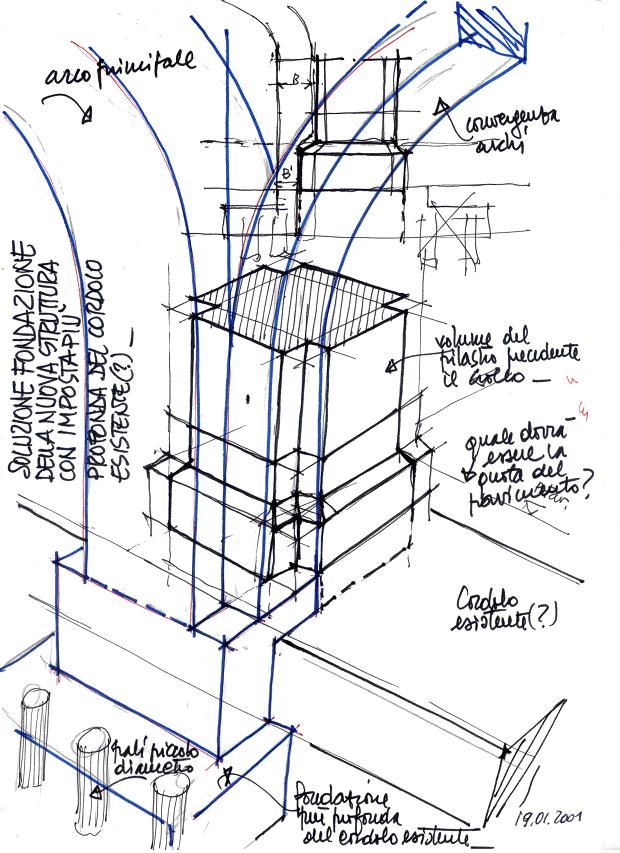 arco
B
convergenza
archi
B'
SOLUZIONE FONDAZIONE
DELLA NUOVA STRUTTURA
CON IMPOSTA PIU'
PROFONDA DEL CORDOLO
ESISTENTE(?)_
volume del
pilastro precedente
il crollo _
quale dovrà
essere la
quota del
pavimento?
Cordolo
esistente(?)
pali piccolo
diametro
Fondazione
più profonda
del cordolo esistente_
19.01.2001